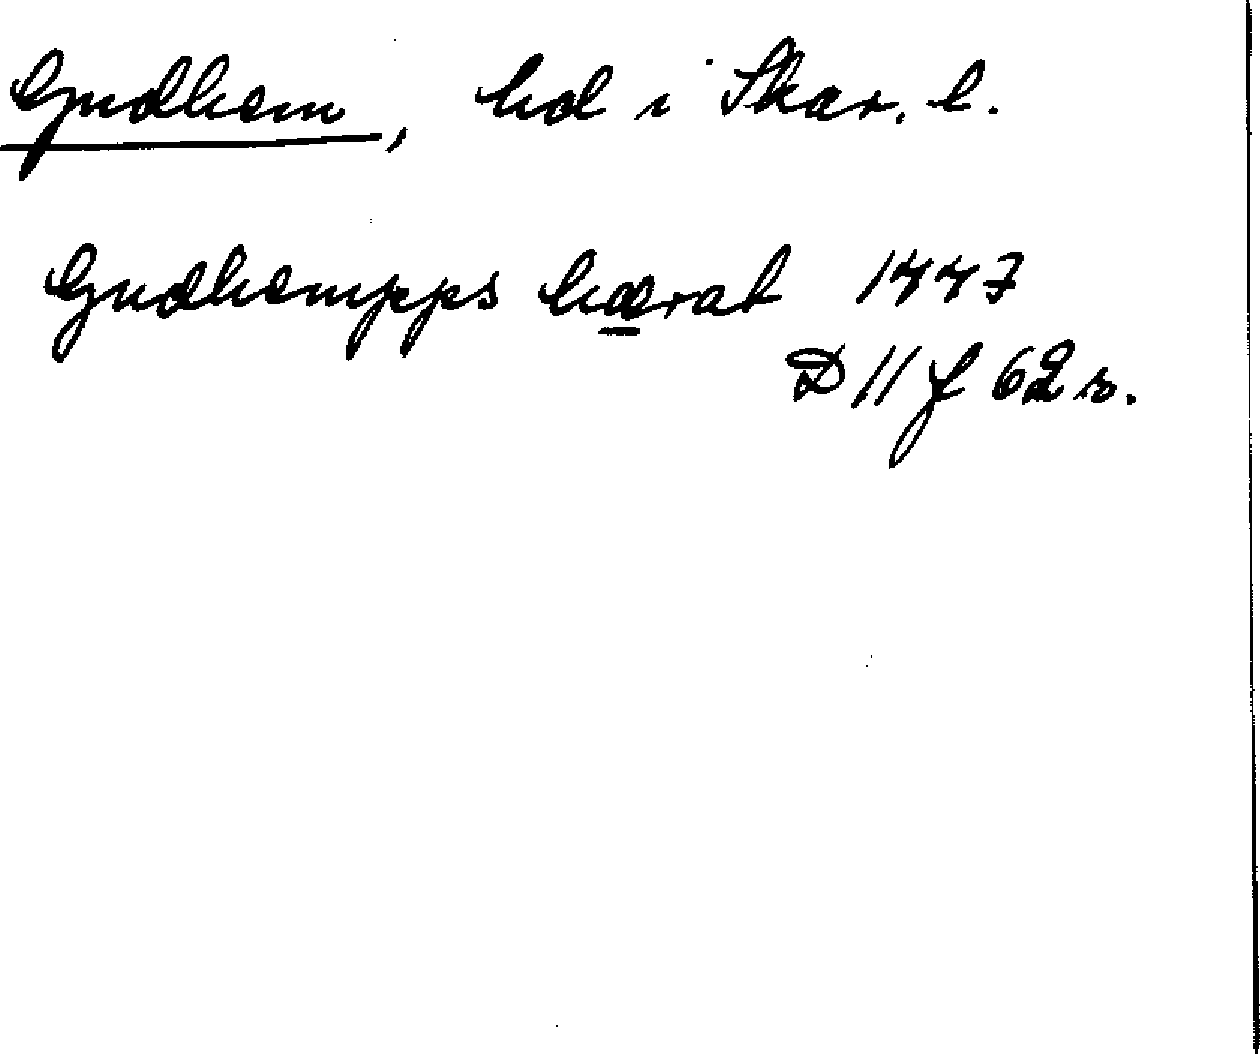 Gudhem, hd i Skar. l.
Gudhempps hærat 1447
D 11 f 62 r.